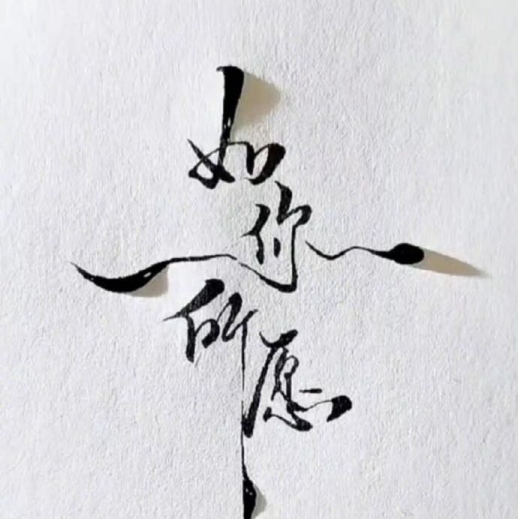 如你
所愿